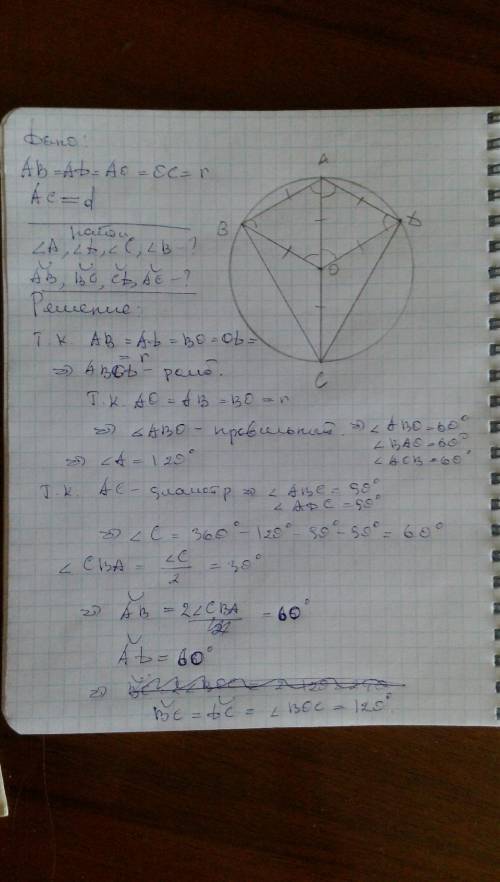 Дано:
AB=AD=AO=OC=r
AC=d
Найти
∠A, ∠D, ∠C, ∠B-?
A͝B, B͝C, C͝D, A͝C-?
Решение:
Т.К. AB=AD=BO=OD=
=r
⇒ ABOD - ромб.
Т.К. AO=AB=BO=r
⇒ ∠ABO - правильный. ⇒ ∠ABO=60°
∠BAO=60°
∠ACB=60°
⇒ ∠A=120°
Т.К. AC-диаметр ⇒ ∠ABC=90°
∠ADC=90°
⇒ ∠C=360°-120°-90°-90°=60°
∠CBA = ∠C/2 = 30°
⇒ A͝B = 2∠CBA = 60°
A͝D = 60°
⇒
B͝C = D͝C = ∠BOC = 120°.
A
B
D
O
C